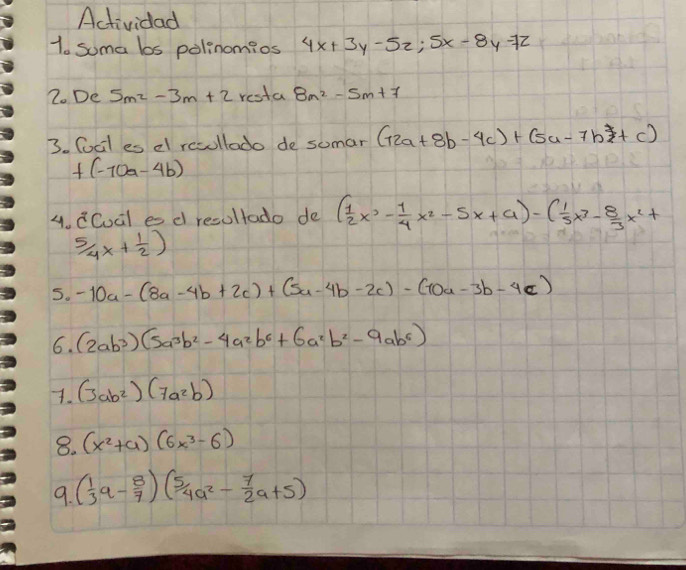 Actividad
1. Suma los polinomios 4x + 3y - 5z; 5x - 8y - 7z
2. De 5m² - 3m + 2 resta 8m² - 5m + 7
3. Cuál es el resultado de sumar (12a + 8b - 4c) + (5a - 7b + c)
+ (-10a - 4b)
4. ¿Cuál es el resultado de (1/2x³ - 1/4x² - 5x + a) - (1/5x³ - 8/3x² +
5/4x + 1/2)
5. -10a - (8a - 4b + 2c) + (5a - 4b - 2c) - (10a - 3b - 4c)
6. (2ab³)(5a³b² - 4a²b⁶ + 6a²b² - 9ab⁶)
7. (3ab²)(7a²b)
8. (x² + a)(6x³ - 6)
9. (1/3a - 8/7)(5/4a² - 7/2a + 5)